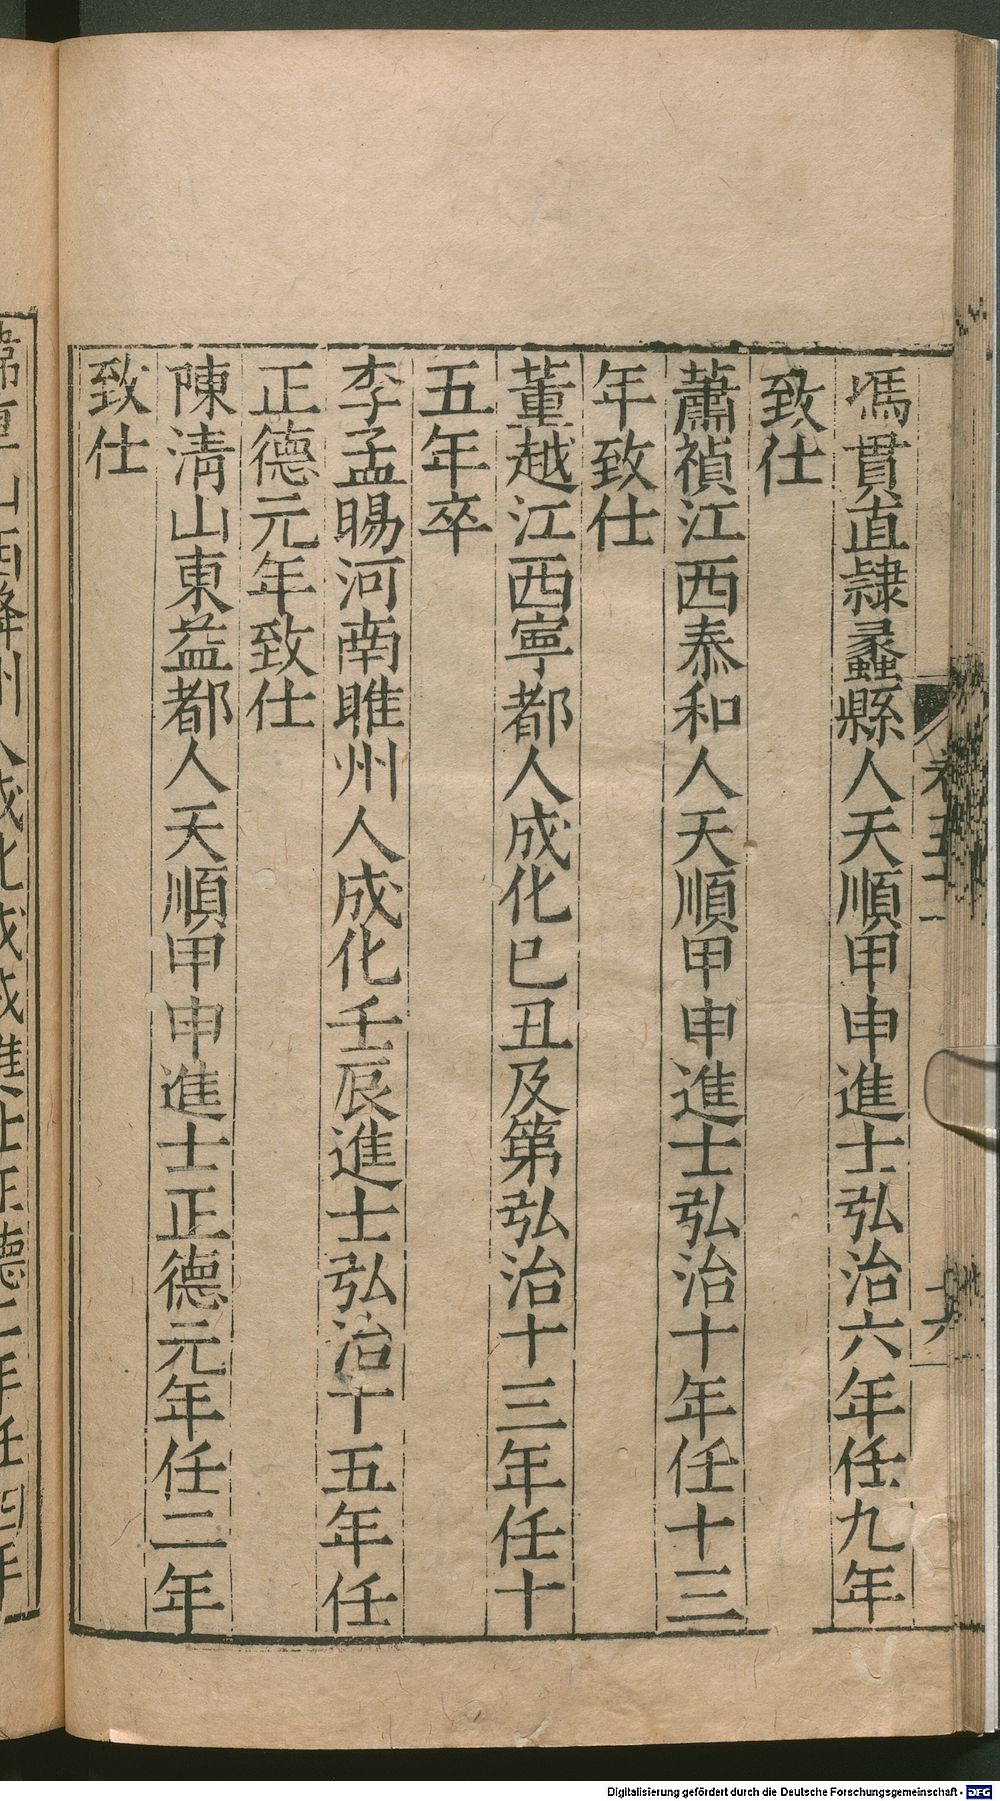 馮貫直隷蠡縣人天順甲申進士弘治六年任九年
致仕
蕭禎江西泰和人天順甲申進士弘治十年任十三
年致仕
董越江西寧都人成化巳丑及第弘治十三年任十
五年卒
李孟暘河南睢州人成化壬辰進士弘治十五年任
正德元年致仕
陳清山東益都人天順甲申進士正德元年任二年
致仕
山西絳州人成化戊戌進士正德二年任四年
Digitalisierung gefördert durch die Deutsche Forschungsgemeinschaft - DFG